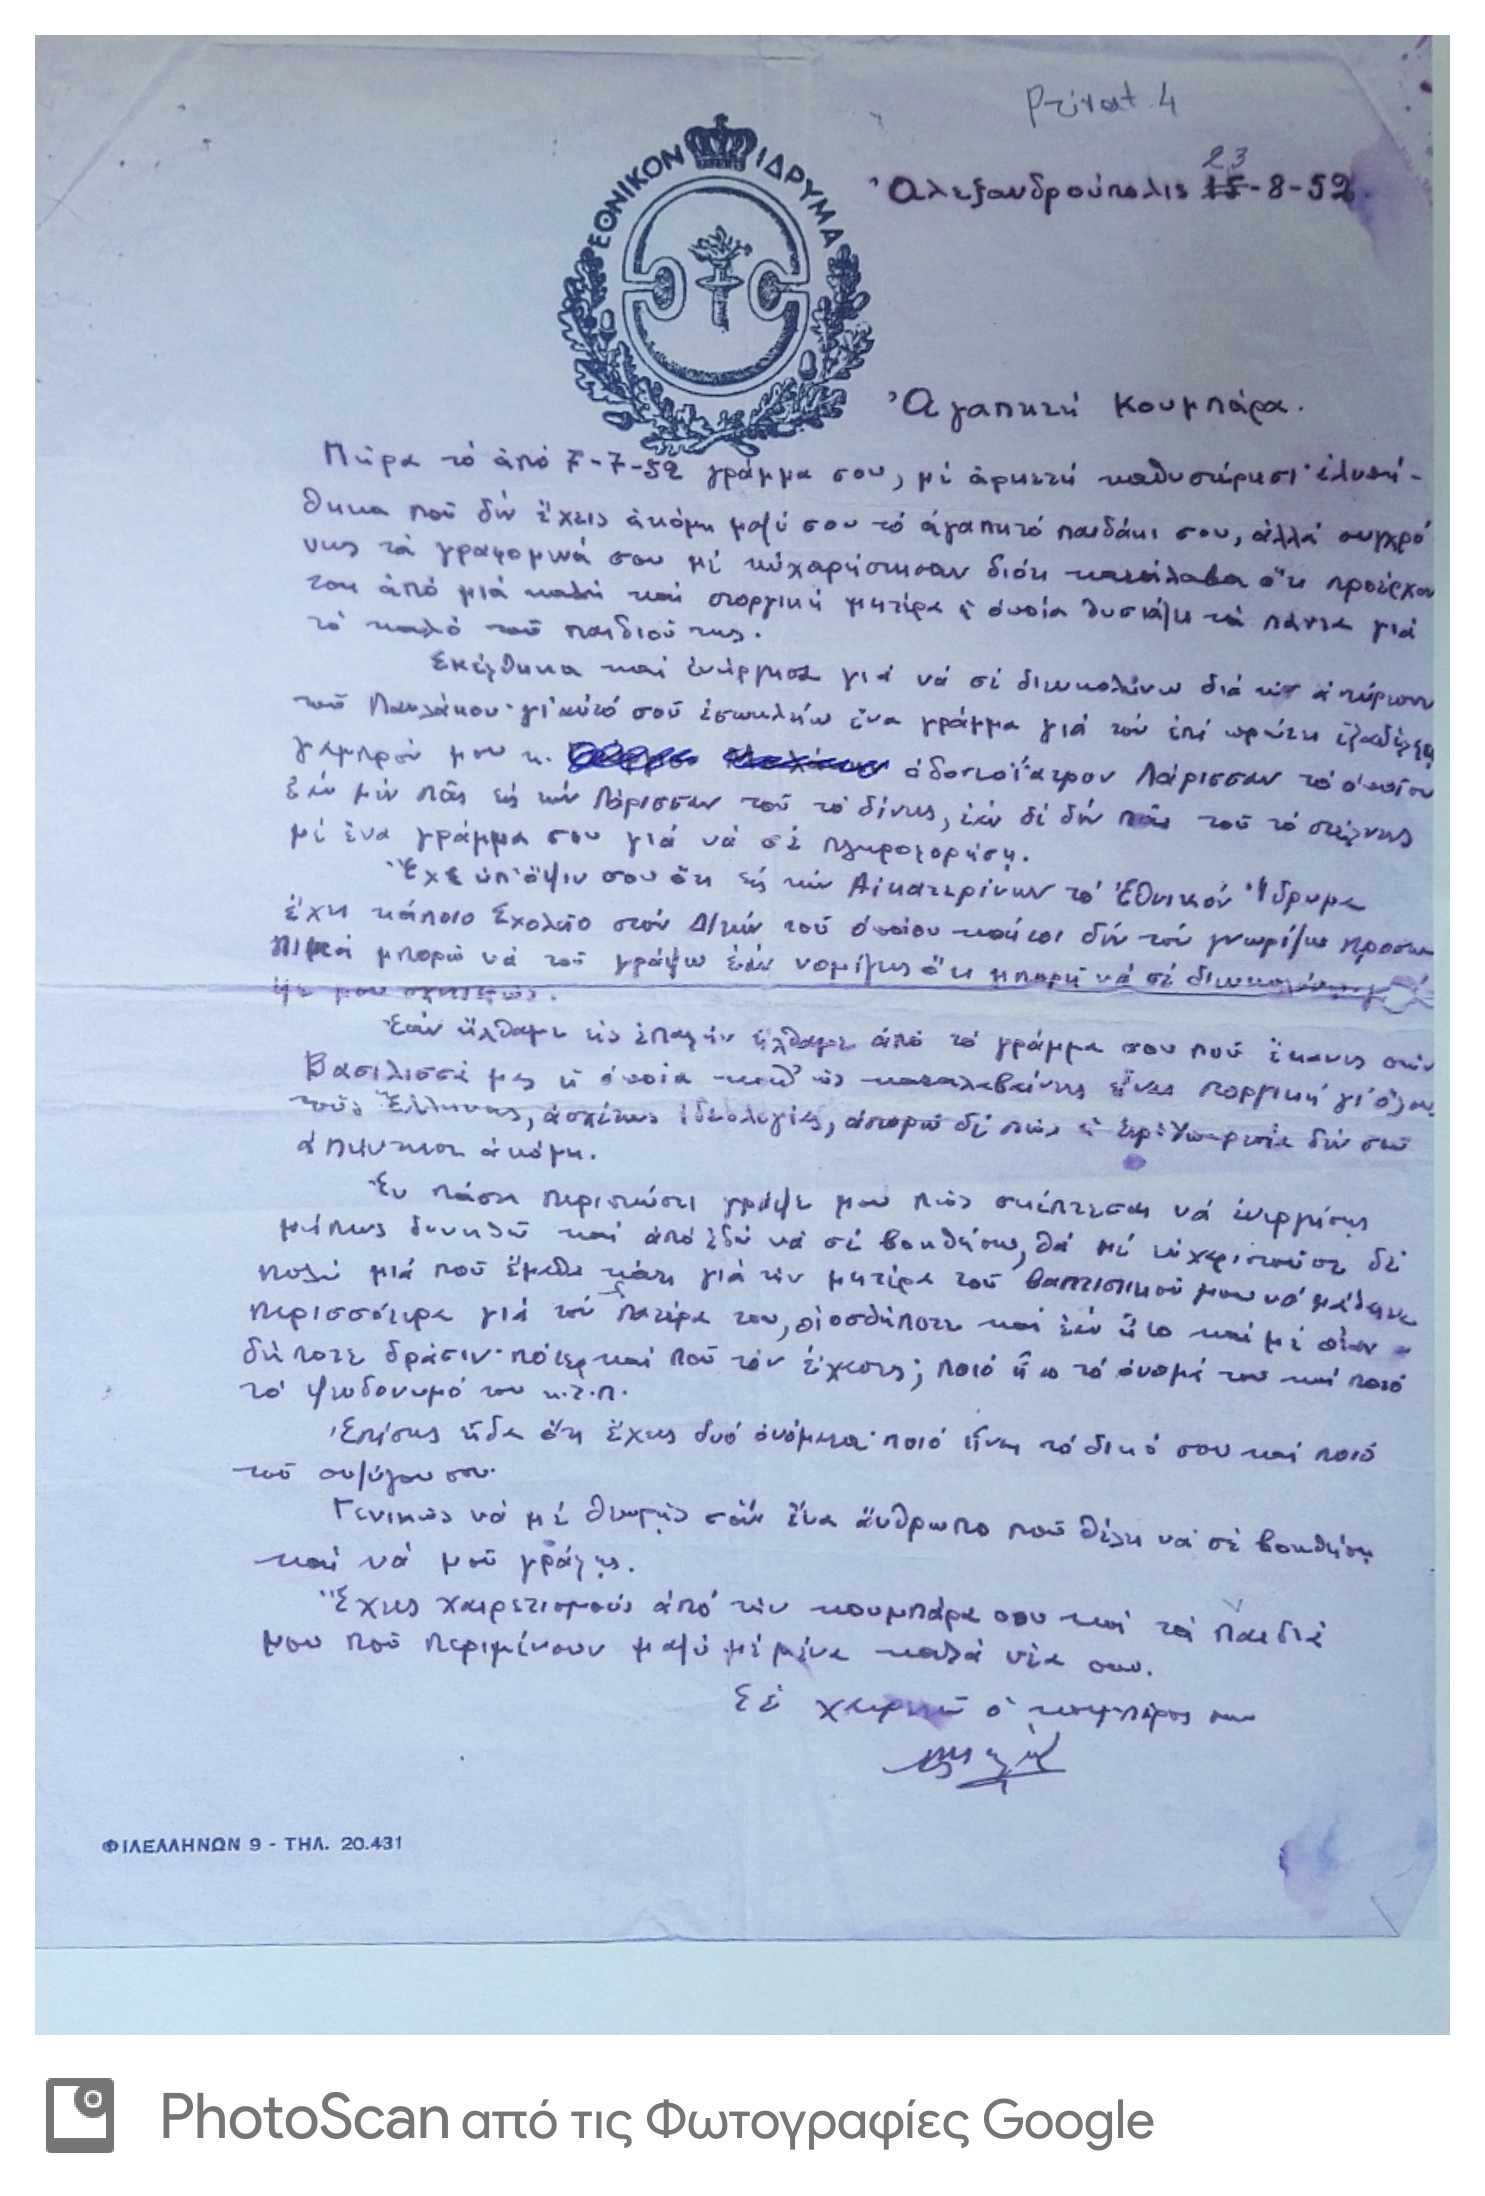 Ρτίνατ. 4
ΕΘΝΙΚΟΝ ΙΔΡΥΜΑ
23
Ἀλεξανδρούπολις 15-8-52.
Ἀγαπητή Κουμπάρα.
Πῆρα τό ἀπό 7-7-52 γράμμα σου, μέ ἀρκετή καθυστέρησι· ἐλυπή-
θηκα ποῦ δέν ἔχεις ἀκόμη μαζύ σου τό ἀγαπητό παιδάκι σου, ἀλλά συγχρό
νως τά γραφόμενά σου μέ ηὐχαρίστησαν διότι κατάλαβα ὅτι προέρχον
ται ἀπό μιά καλή καί στοργική μητέρα ἡ ὁποία θυσιάζει τά πάντα γιά
τό καλό τοῦ παιδιοῦ της.
Σκέφθηκα καί ἐνήργησα γιά νά σέ διευκολύνω διά τήν
τοῦ Παυλάκου· γι' αὐτό σοῦ ἐσωκλείω ἕνα γράμμα γιά τόν ἐπί πρώτῃ ἐξαδέλφῃ
γαμπρόν μου κ. ὀδοντοΐατρον Λάρισσαν τό ὁποῖον
ἐάν μέν πᾶς εἰς τήν Λάρισσαν τοῦ τό δίνεις, ἐάν δέ δέν πᾶς τοῦ τό στέλνεις
μέ ἕνα γράμμα σου γιά νά σέ πληροφορήσῃ.
Ἔχε ὑπ' ὄψιν σου ὅτι εἰς τήν Αἰκατερίνην τό Ἐθνικόν Ἵδρυμα
ἔχει κάποιο Σχολεῖο στόν Δ/τήν τοῦ ὁποίου καίτοι δέν τόν γνωρίζω προσω
πικά μπορῶ νά τοῦ γράψω ἐάν νομίζεις ὅτι μπορῇ νά σέ διευκολύνῃ γρά
ψε μου σχετικῶς.
Ἐάν ἤλθαμε εἰς ἐπαφήν ἤλθαμε ἀπό τό γράμμα σου ποῦ ἔκανες στήν
Βασίλισσά μας ἡ ὁποία καθ' ὡς καταλαβαίνεις εἶναι στοργική γι' ὅλους
τούς Ἕλληνας, ἀσχέτως ἰδεολογίας, ἀπορῶ δέ πῶς ἡ δέν σοῦ
ἀπήντησε ἀκόμη.
Ἐν πάσῃ περιπτώσει γράψε μου πῶς σκέπτεσαι νά ἐνεργήσῃς
μήπως δυνηθῶ καί ἀπό ἐδῶ νά σέ βοηθήσω, θά μέ ηὐχαριστοῦσε δέ
πολύ μιά ποῦ ἔμαθα κάτι γιά τήν μητέρα τοῦ βαπτιστικοῦ μου νά μάθαινα
περισσότερα γιά τόν πατέρα του, οἱοσδήποτε καί ἐάν ἦτο καί μέ οἵαν -
δήποτε δρᾶσιν· πότε καί ποῦ τόν ἔχασες; ποιό ἦτο τό ὄνομά του καί ποιό
τό ψευδόνυμό του κ.τ.π.
Ἐπίσης εἶδα ὅτι ἔχεις δυό ὀνόματα· ποιό εἶναι τό δικό σου καί ποιό
τοῦ συζύγου σου·
Γενικῶς νά μέ θεωρῇς σάν ἕνα ἄνθρωπο ποῦ θέλει νά σέ βοηθήσῃ
καί νά μοῦ γράφῃς.
Ἔχεις χαιρετισμούς ἀπό τήν κουμπάρα σου καί τά παιδιά
μου ποῦ περιμένουν μαζύ μέ μένα καλά νέα σου.
Σέ χαιρετῶ ὁ κουμπάρος σου
ΦΙΛΕΛΛΗΝΩΝ 9 - ΤΗΛ. 20.431
PhotoScan από τις Φωτογραφίες Google